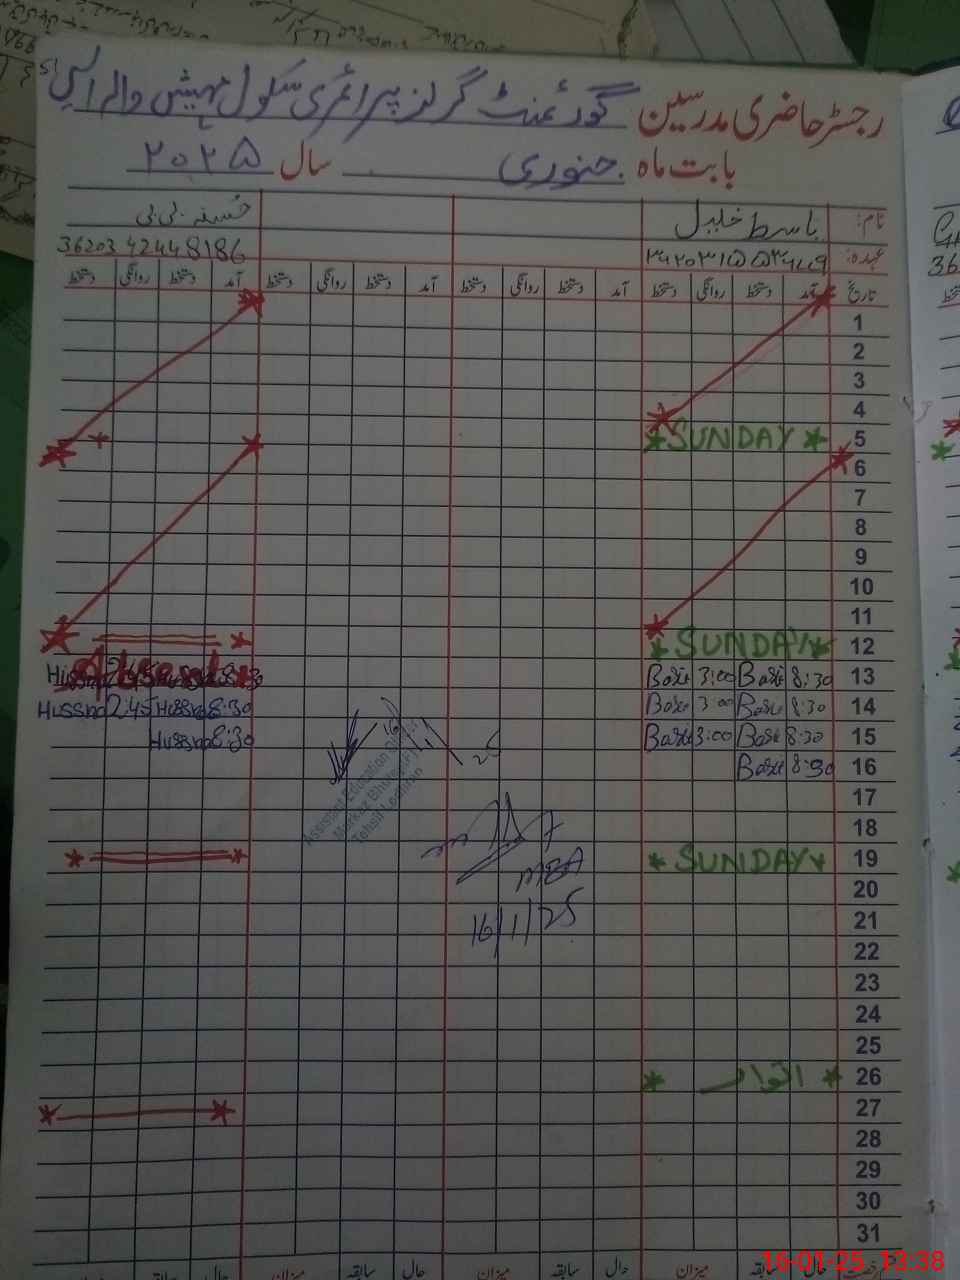 رجسٹر حاضری مدرسین گورنمنٹ گرلز پرائمری سکول
بابت ماہ جنوری سال ۲۰۲۵
نام: باسط خلیل حُسنہ بی بی
عہدہ: 36203 42448186
تاریخ آمد دستخط روانگی دستخط آمد دستخط روانگی دستخط آمد دستخط روانگی دستخط آمد دستخط روانگی دستخط
1
2
3
4
5 SUNDAY
6
7
8
9
10
11
12 SUNDAY
13 8:30 Basit 3:00 Basit 8:30 Hussna 2:45 Hussna
14 8:30 Basit 3:00 Basit 8:30 Hussna 2:45 Hussna
15 8:30 Basit 3:00 Basit 8:30 Hussna
16 8:30 Basit
17
18
19 SUNDAY
20
21
22
23
24
25
26 اتوار
27
28
29
30
31
Assistant Education Officer
Markaz
Tehsil Lodhran
MEA
16/1/25
حال سابقہ میزان حال سابقہ میزان حال سابقہ میزان حال سابقہ
16-01-25 13:38